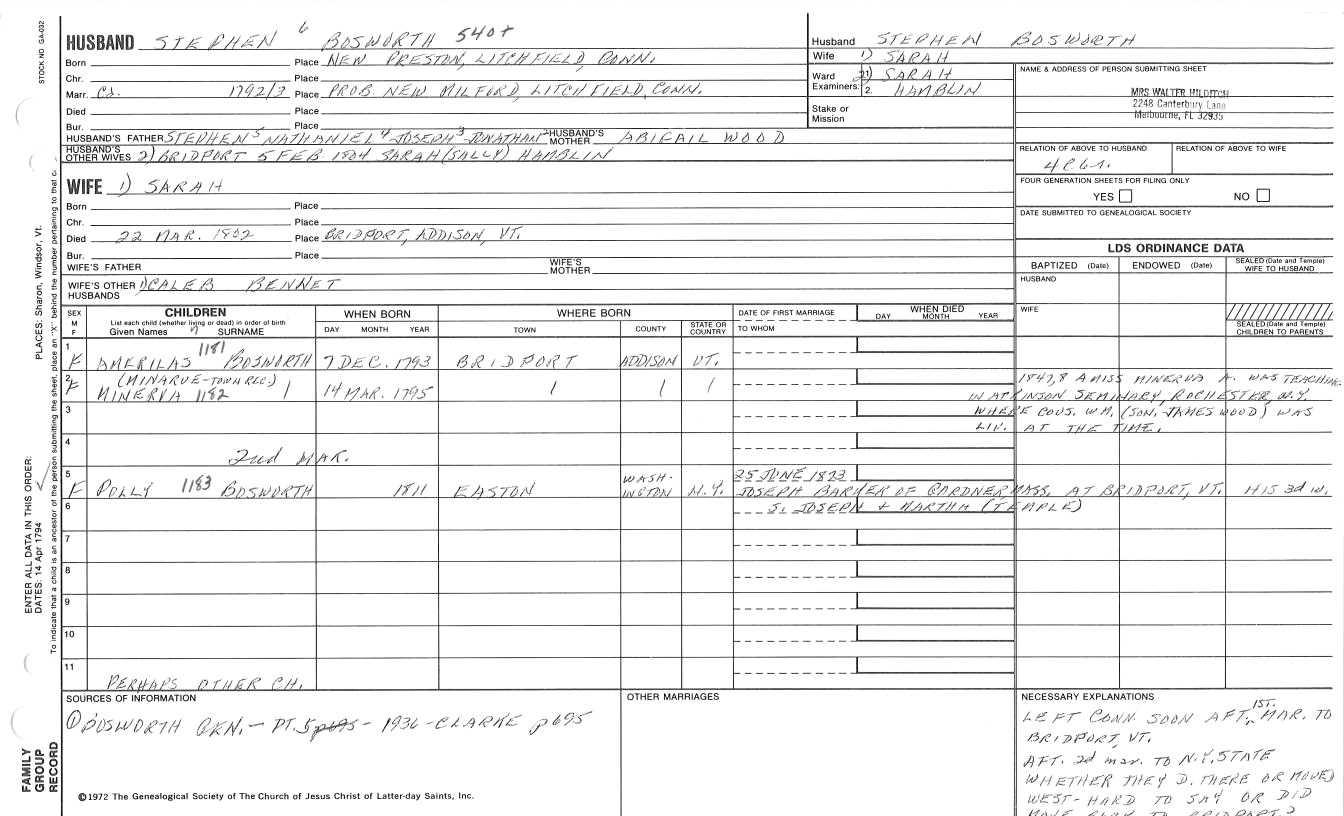 STOCK NO. GA-032
HUSBAND STEPHEN 6 BOSWORTH 540+
Born Place NEW PRESTON, LITCHFIELD, CONN.
Chr. Place
Marr. Ca. 1792/3 Place PROB. NEW MILFORD, LITCHFIELD, CONN.
Died Place
Bur. Place
HUSBAND'S FATHER STEPHEN 5 NATHANIEL 4 JOSEPH 3 JONATHAN 2 HUSBAND'S MOTHER ABIGAIL WOOD
HUSBAND'S OTHER WIVES 2) BRIDPORT 5 FEB 1804 SARAH (SALLY) HAMBLIN
Husband STEPHEN BOSWORTH
Wife 1) SARAH
Ward 2) SARAH
Examiners: 1. 2. HAMBLIN
Stake or Mission
NAME & ADDRESS OF PERSON SUBMITTING SHEET
MRS WALTER HILDITCH
2248 Canterbury Lane
Melbourne, FL 32935
RELATION OF ABOVE TO HUSBAND RELATION OF ABOVE TO WIFE
FOUR GENERATION SHEETS FOR FILING ONLY
YES NO
DATE SUBMITTED TO GENEALOGICAL SOCIETY
WIFE 1) SARAH
Born Place
Chr. Place
Died 22 MAR. 1802 Place BRIDPORT, ADDISON, VT.
Bur. Place
WIFE'S FATHER WIFE'S MOTHER
WIFE'S OTHER HUSBANDS 1) CALEB BENNET
LDS ORDINANCE DATA
BAPTIZED (Date) ENDOWED (Date) SEALED (Date and Temple) WIFE TO HUSBAND
HUSBAND
WIFE
SEALED (Date and Temple) CHILDREN TO PARENTS
SEX M F CHILDREN WHEN BORN WHERE BORN DATE OF FIRST MARRIAGE WHEN DIED
List each child (whether living or dead) in order of birth DAY MONTH YEAR
Given Names 7 SURNAME DAY MONTH YEAR TOWN COUNTY STATE OR COUNTRY TO WHOM
1 F AMERILAS 1181 BOSWORTH 7 DEC. 1793 BRIDPORT ADDISON VT.
2 F (MINARVE - TOWN REC.)
MINERVA 1182 14 MAR. 1795
1847,8 A MISS MINERVA A. WAS TEACHING
IN ATKINSON SEMINARY, ROCHESTER, N.Y.
WHERE COUS. WM. (SON. JAMES WOOD) WAS
LIV. AT THE TIME.
3
4
2nd MAR.
5 F POLLY 1183 BOSWORTH 1811 EASTON WASHINGTON N.Y. 25 JUNE 1823
JOSEPH BARHER OF GARDNER, MASS. AT BRIDPORT, VT. HIS 3d W.
6 S. JOSEPH & MARTHA (TEMPLE)
7
8
9
10
11
PERHAPS OTHER CH.
SOURCES OF INFORMATION
① BOSWORTH GEN. - PT. 5 p695 - 1936 - CLARKE p 695
©1972 The Genealogical Society of The Church of Jesus Christ of Latter-day Saints, Inc.
OTHER MARRIAGES
NECESSARY EXPLANATIONS
LEFT CONN. SOON AFT. 1ST. MAR. TO
BRIDPORT, VT.
AFT. 2d mar. TO N.Y. STATE
WHETHER THEY D. THERE OR MOVED
WEST - HARD TO SAY OR DID
MOVE BACK TO BRIDPORT?
PLACES: Sharon, Windsor, Vt.
To indicate that a child is an ancestor of the person submitting the sheet, place an "X" behind the number pertaining to that c.
ENTER ALL DATA IN THIS ORDER:
DATES: 14 Apr 1794
FAMILY GROUP RECORD